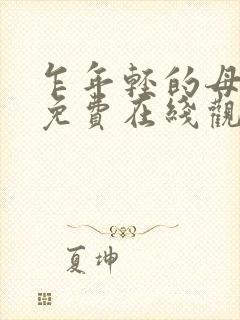 乍年轻的母
免費在綫觀
夏坤